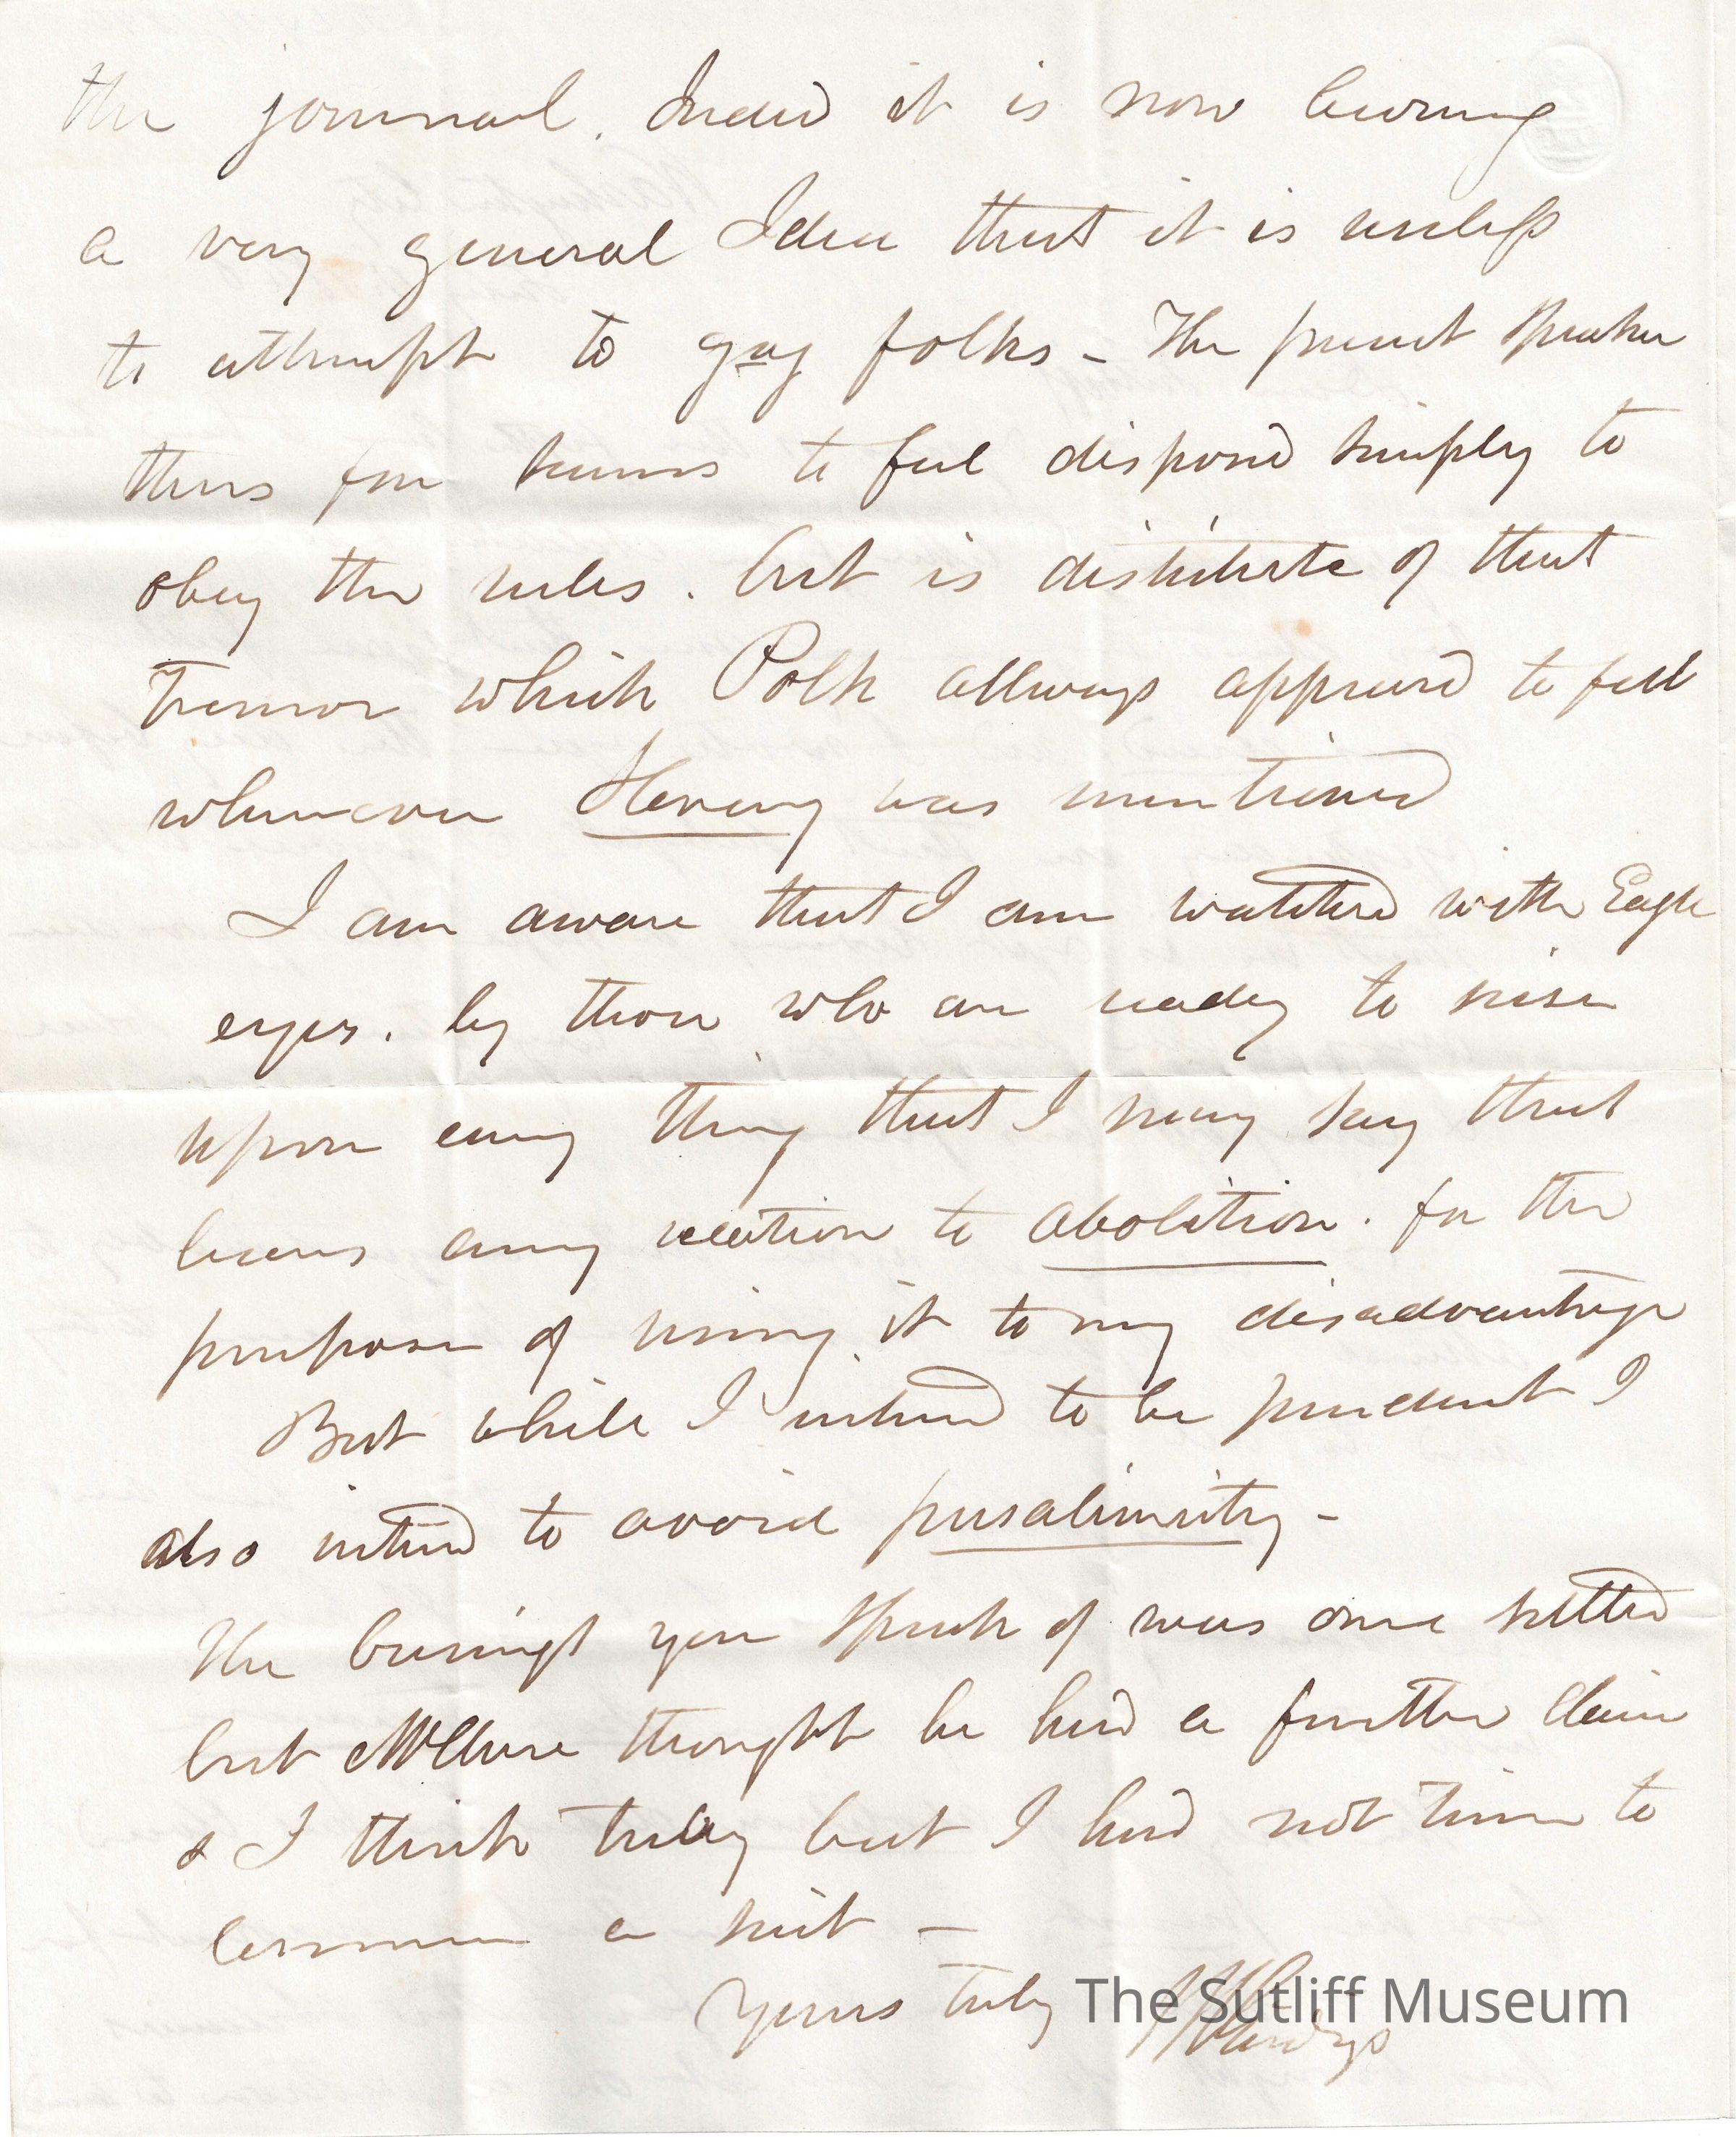 the journal. Indeed it is now becoming
a very general Idea that it is useless
to attempt to gag folks – The present Speaker
thus far seems to feel disposed simply to
obey the rules. but is distitute of that
Tremor which Polk allways appeared to feel
whenever Slavery was mentioned
I am aware that I am watched with Eagle
eyes. by those who are ready to seise
upon any thing that I may say that
bears any relation to abolition. for the
purpose of using it to my disadvantage
But while I intend to be prudent I
also intend to avoid pusalimity –
The business you speak of was once settled
but McClure thought he had a further claim
& I think truly but I had not time to
commence a suit –
Yours truly J R Giddings
The Sutliff Museum